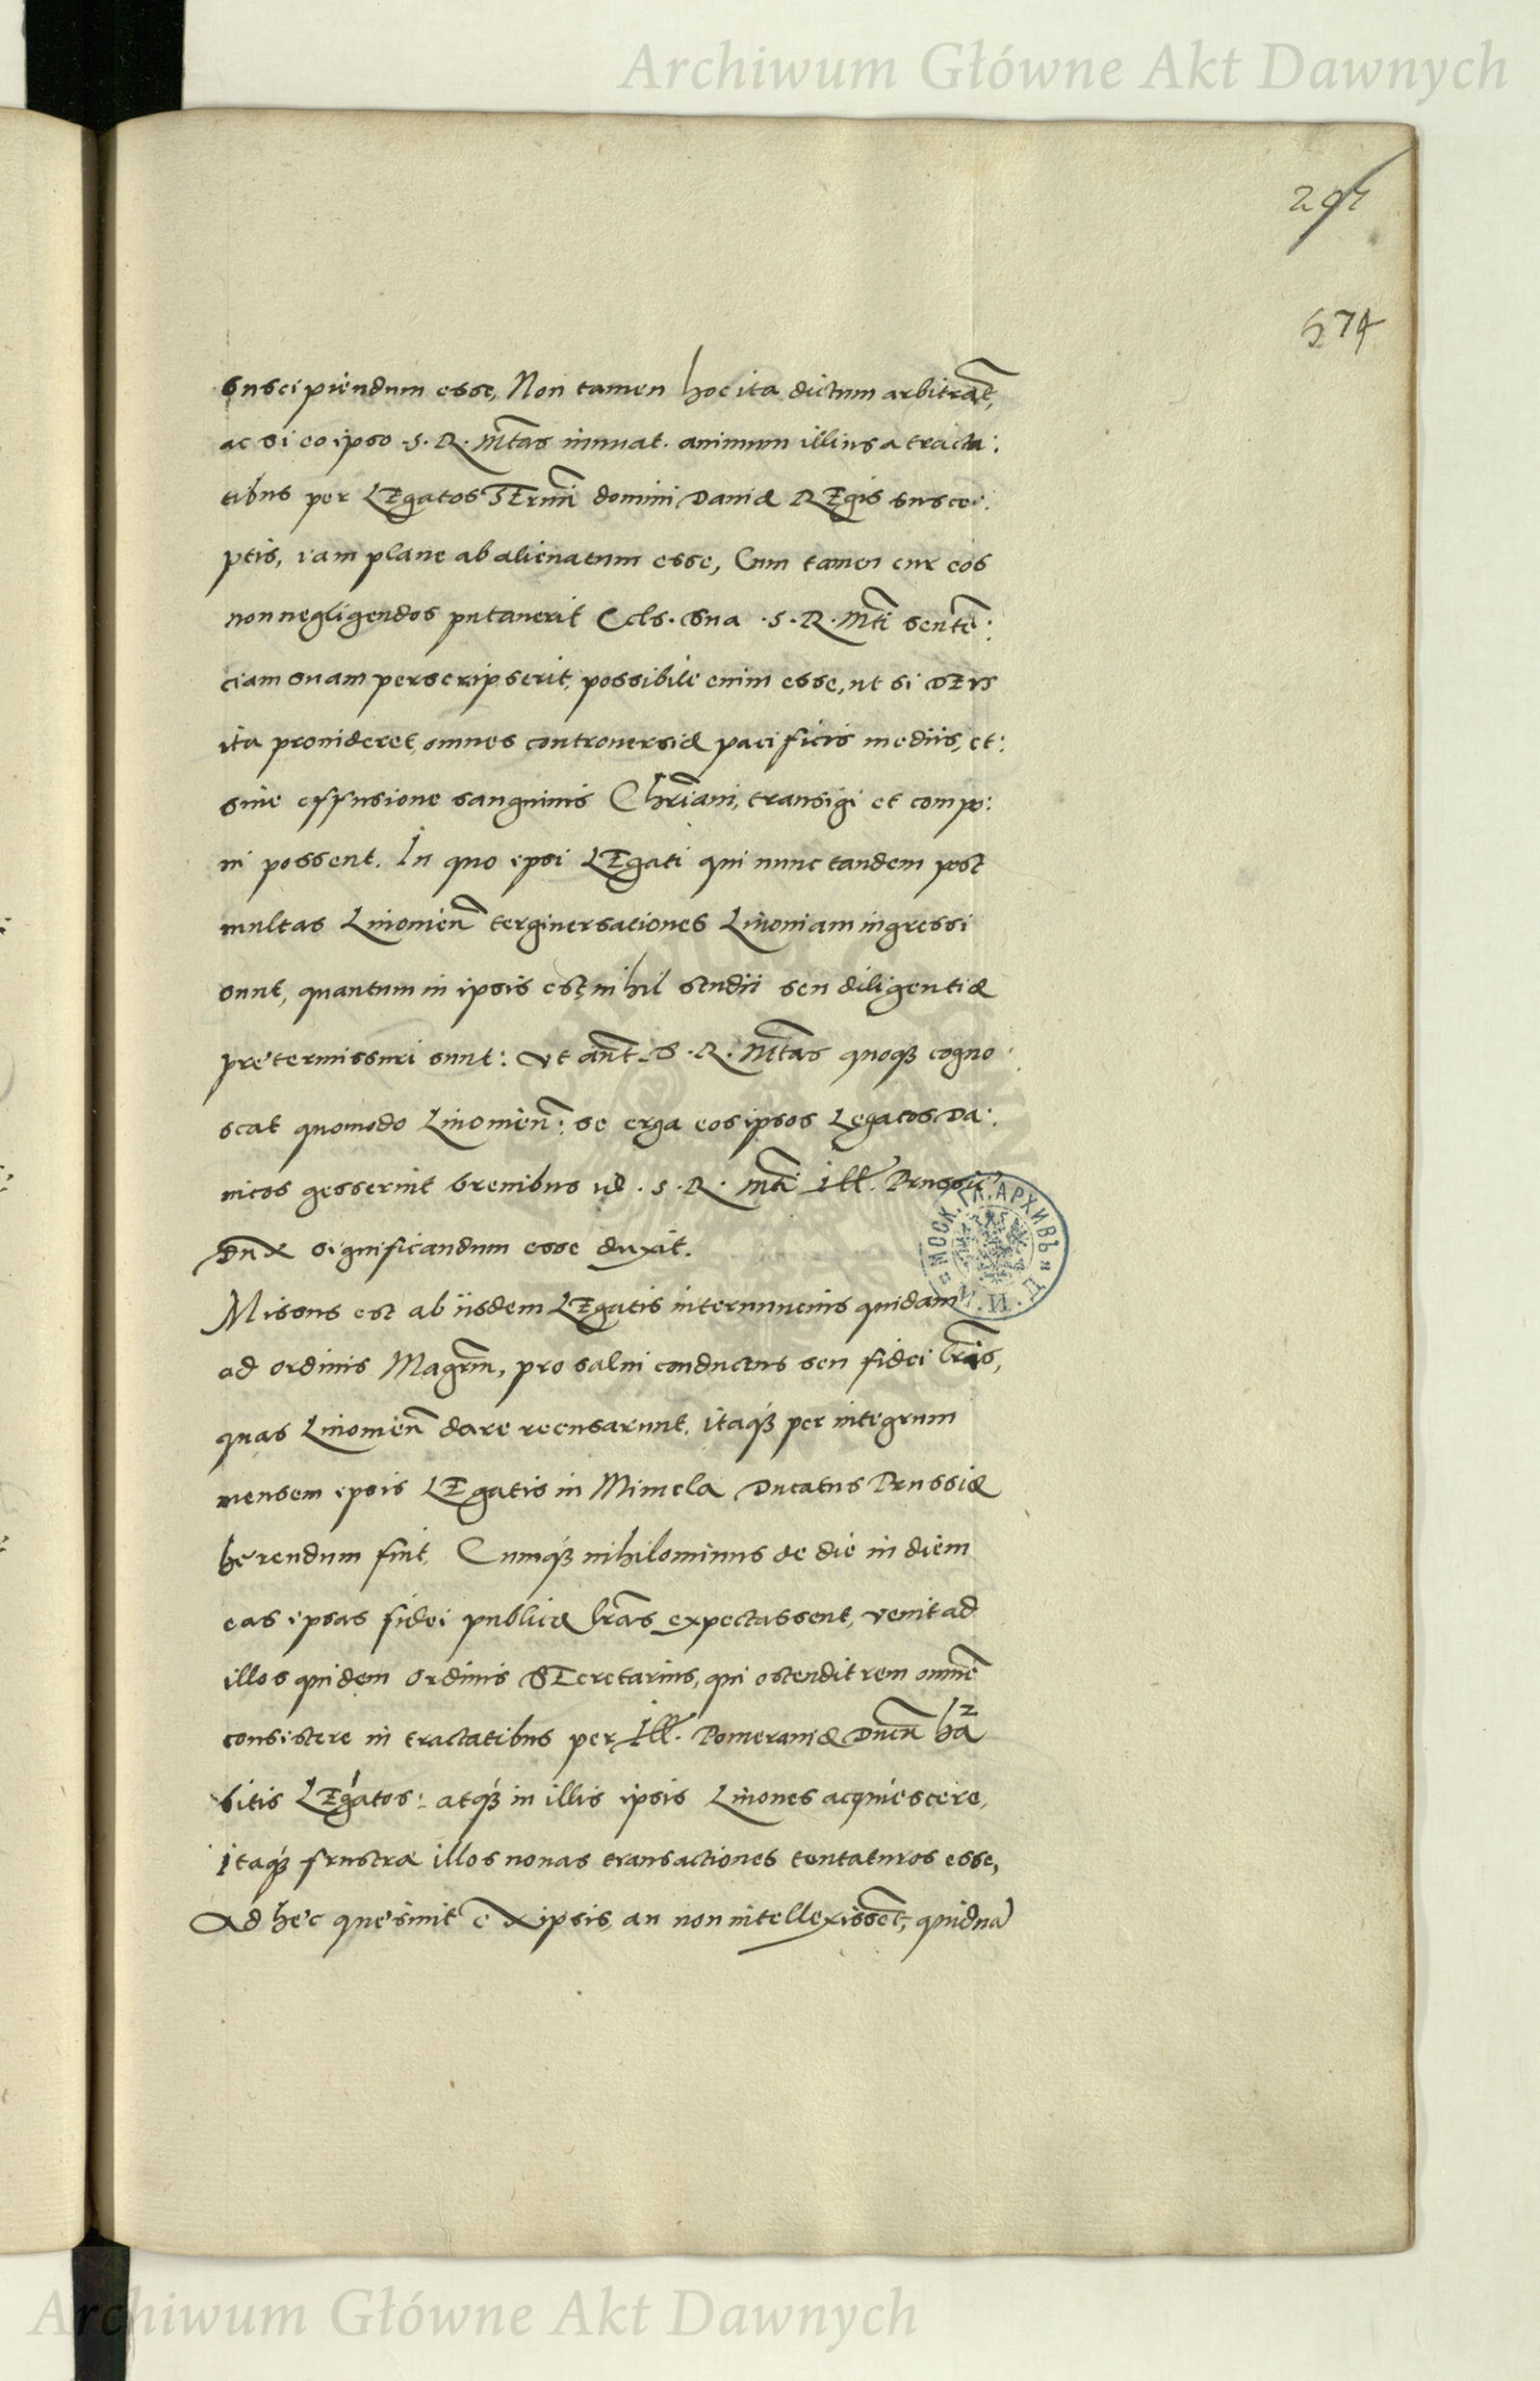 Archiwum Główne Akt Dawnych
297
574
suscipiendum esse, Non tamen hoc ita dictum arbitrat̃,
ac si eo ipso .S.R. Mt̃as innuat. animum illius a tracta:
tibus per LEgatos SErmĩ domini Daniæ REgis susce:
ptis, iam plane abalienatum esse, Cum tamen cur eos
non negligendos putauerit Cels. sua .S.R. Mt̃i senteñ:
ciam suam perscripserit, possibile enim esse, ut si DEus
ita prouideret, omnes controuersiæ pacificis mediis, et:
sine effusione sanguinis Chrĩani, transigi et compo:
ni possent. In quo ipsi LEgati qui nunc tandem post
multas Liuonieñ tergiuersationes Liuoniam ingressi
sunt, quantum in ipsis est, nihil studii seu diligentiæ
prętermissuri sunt: Ut aũt S.R. Mt̃as quoqȝ cogno:
scat quomodo Liuonieñ: se erga eos ipsos Legatos Da:
nicos gesserint breuibus id .S.R. Mt̃i Ill. Prussiæ
Dux significandum esse duxit.
Missus est ab iisdem LEgatis internuncius quidam
ad ordinis Magrm̃, pro salui conductus seu fidei lrãis,
quas Liuonieñ dare recusarunt, itaqȝ per integrum
mensem ipsis LEgatis in Mimela Ducatus Prussiæ
hęrendum fuit, Cumqȝ nihilominus de die in diem
eas ipsas fidei publicæ lrãs expectassent, venit ad
illos quidem ordinis SEcretarius, qui ostendit rem omnẽ
consistere in tractatibus per Ill. Pomeraniæ Ducũ ha
bitis LEgatos: atqȝ in illis ipsis Liuones acquiescere,
itaqȝ frustra illos nouas transactiones tentaturos esse,
Ad hęc quęsiuit ex ipsis, an non intellexissẽt, quidnã
МОСК. ГЛ. АРХИВЪ
М. И. Д.
Archiwum Główne Akt Dawnych